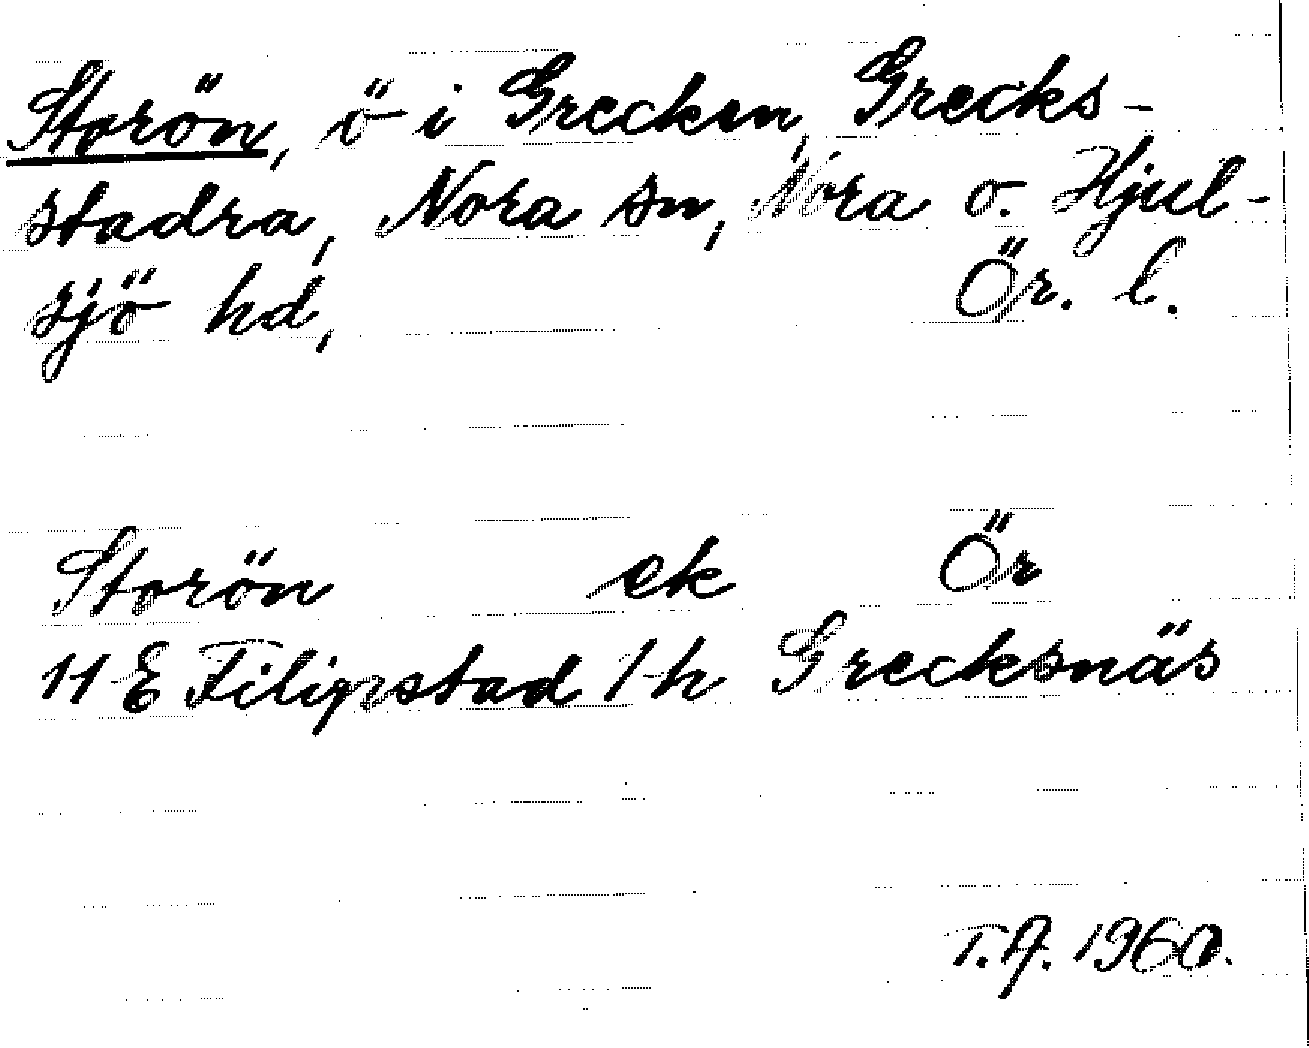 Storön, ö i Grecken, Grecks-
stadra, Nora sn, Nora o. Hjul-
sjö hd, Ör. l.
Storön ek Ör
11 E Filipstad 1 h Grecksnäs
T.A. 1960.